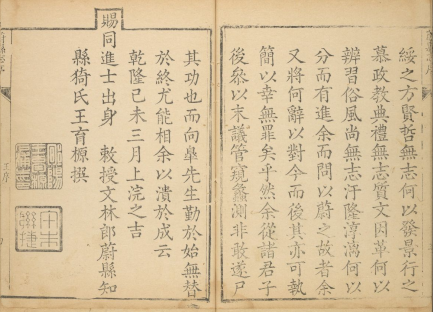 綏之方賢哲無志何以發景行之
慕政教典禮無志質文因革何以
辨習俗風尚無志汙隆淳漓何以
分而有進余而問以蔚之故者余
又將何辭以對今而後其亦可執
簡以幸無罪矣乎然余從諸君子
後參以末議管窺蠡測非敢遂尸
其功也而向皐先生勤於始無替
於終尤能相余以潰於成云
乾隆己未三月上浣之吉
賜同進士出身 敕授文林郎蔚縣知
縣猗氏王育榞撰
王序